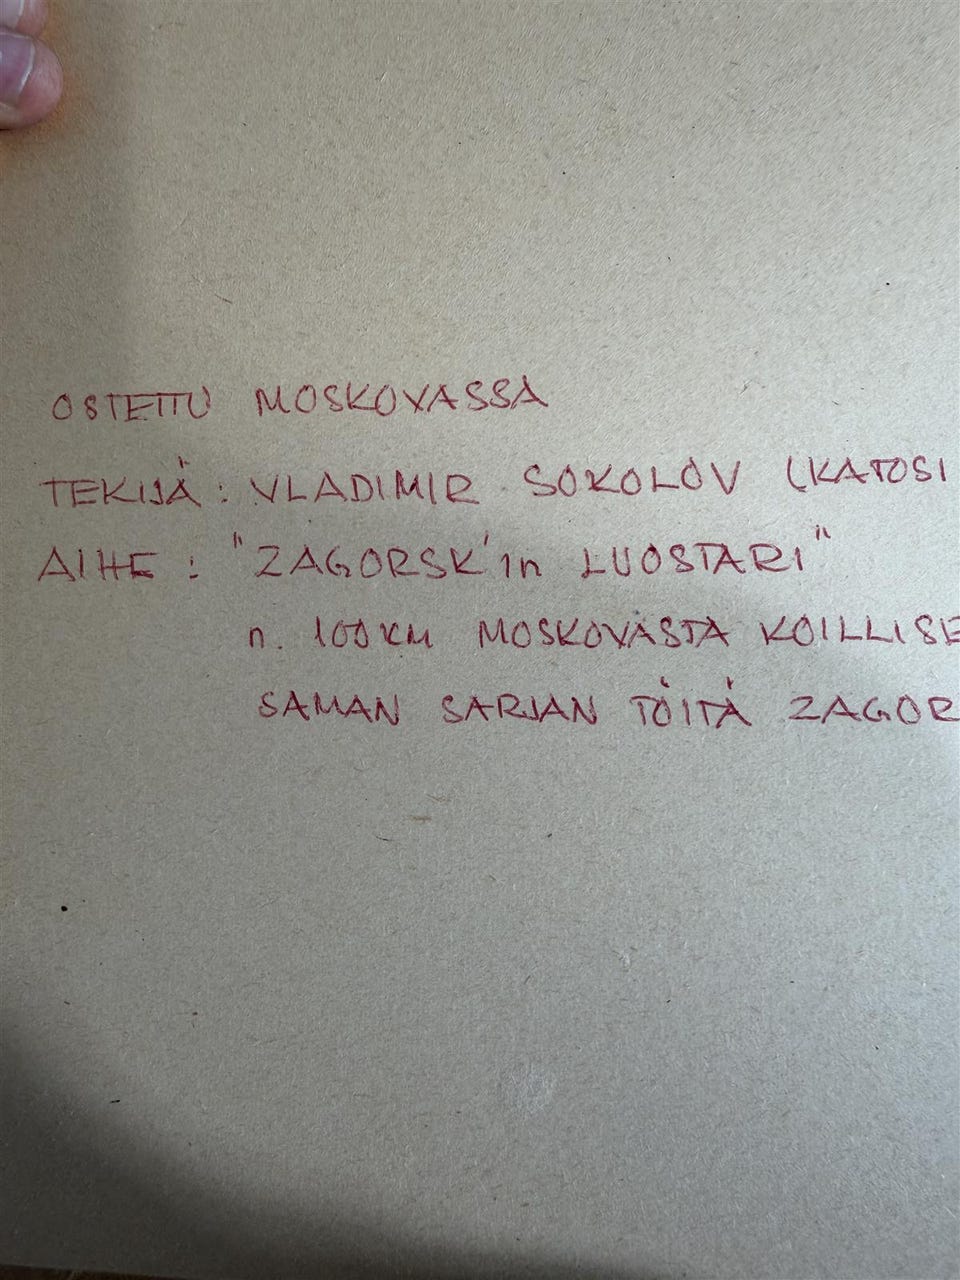 OSTETTU MOSKOVASSA
TEKIJÄ: VLADIMIR SOKOLOV (KATOSI
AIHE: "ZAGORSK'in LUOSTARI"
n. 100 KM MOSKOVASTA KOILLISE
SAMAN SARJAN TÖITÄ ZAGOR